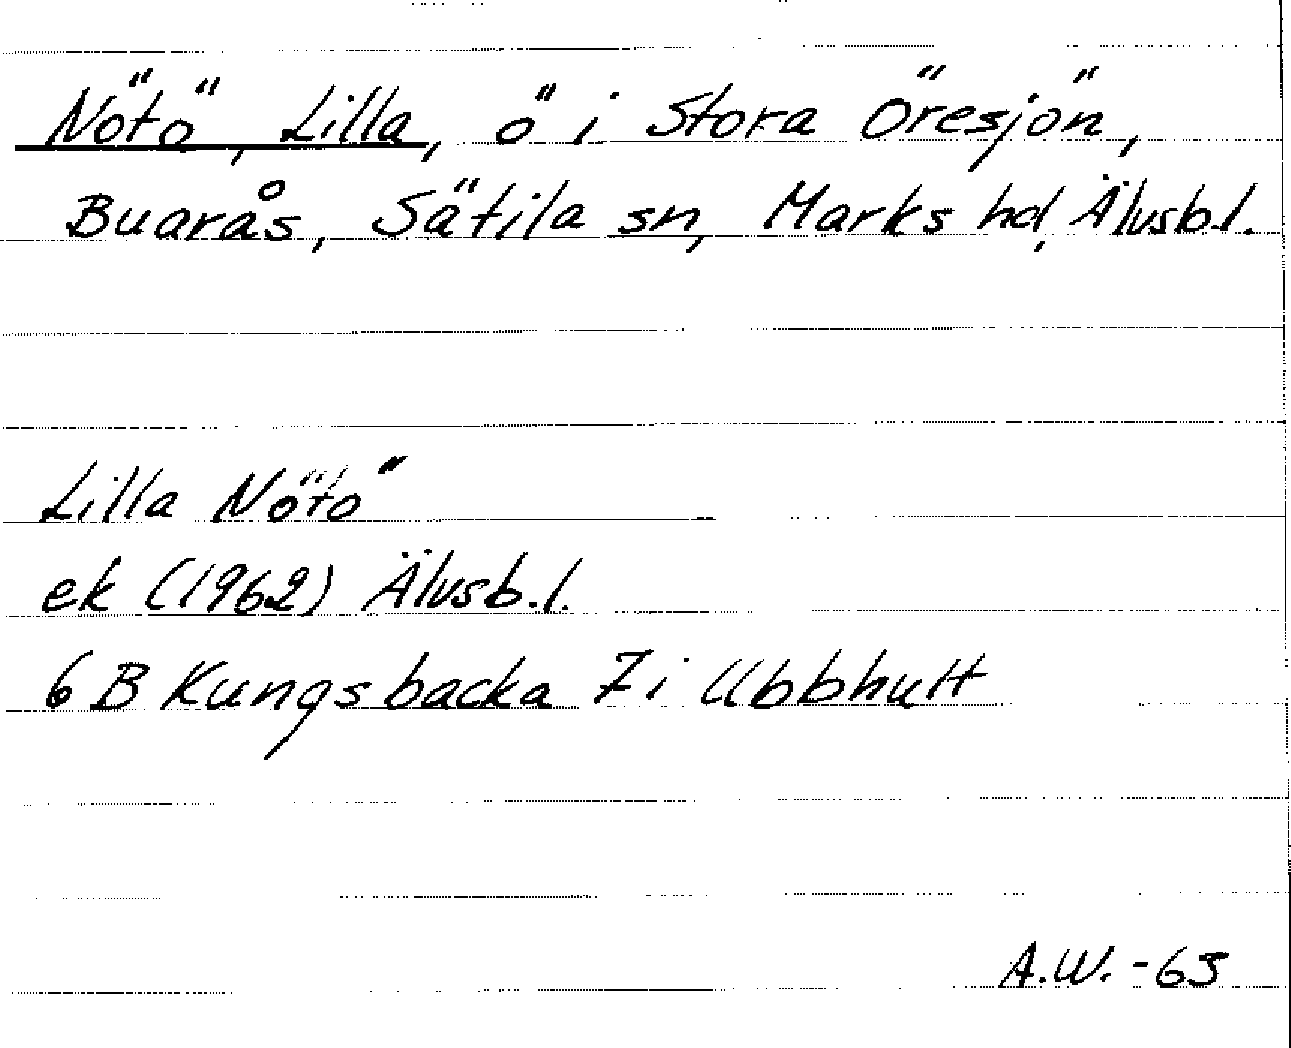 Nötö, Lilla, ö i Stora Öresjön,
Buarås, Sätila sn, Marks hd, Älvsb.l.
Lilla Nötö
ek (1962) Älvsb.l.
6 B Kungsbacka 7i Ubbhult
A.W. -65